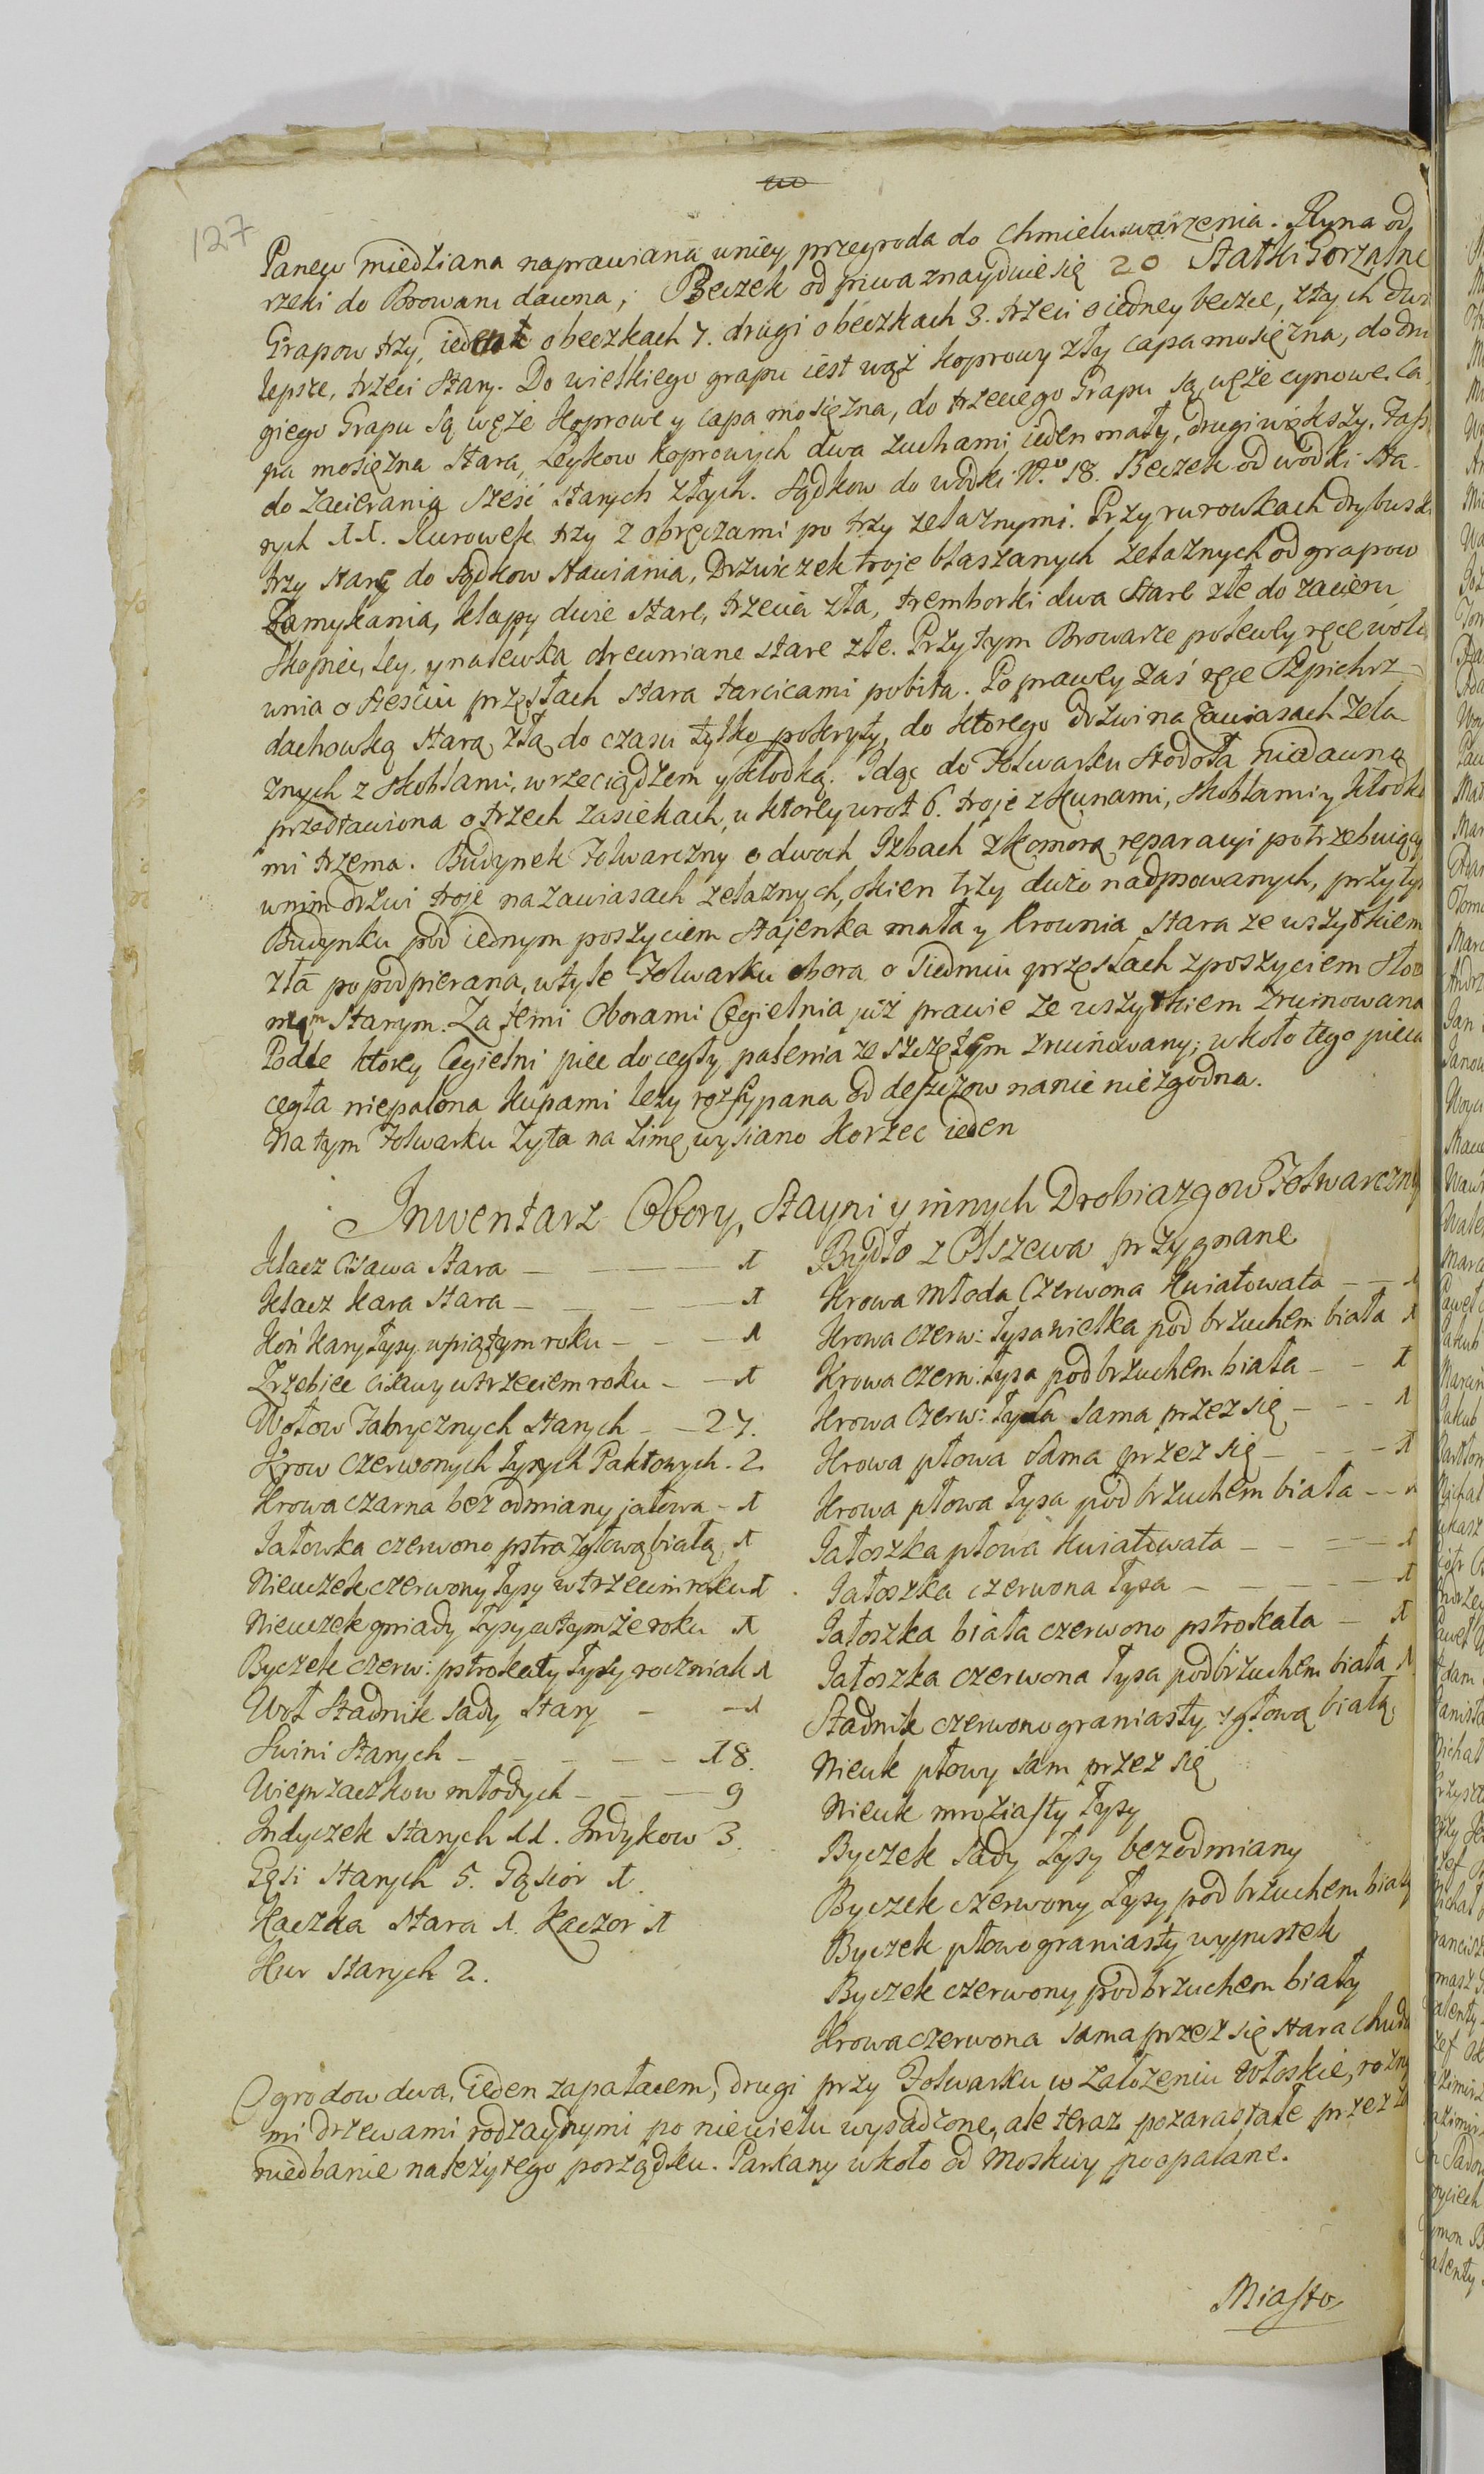 127
Panew miedziana naprawiana wniey przegroda do Chmielu warzenia. Ryna od
rzeki do Browaru dawna; Beczek od piwa znayduie się 20 Statki Gorzalne
Grapow trzy, ieden o beczkach 7. drugi o beczkach 3. trzeci o iedney beczce, złych dwa
lepsze, trzeci stary. Do wielkiego grapu iest wąż koprowy zły capa mosiężna, do dru
giego Grapu są węże koprowe y capa mosiężna, do trzeciego Grapu są węże cynowe. Ca
pa mosiężna stara, Leykow koprowych dwa z uchami, ieden mały, drugi większy. Fass
do zacierania sześć starych złych. Sądkow do wodki No. 18. Beczek od wodki sta-
rych 11. Kurowek trzy z obręczami po trzy żelaznymi. Przy rurowkach drybuski
trzy stare do sądkow stawiania, Drzwiczek troje blaszanych żelaznych od grapow
Zamykania, klapy dwie stare, trzecia zła, tremborki dwa stare złe do zacieru
Skopiec, ley, y nalewka drewniane stare złe. Przy tym Browarze po lewey ręce woło
wnia o sześciu przęsłach stara tarcicami pobita. Po prawey zaś ręce Szpichrz
dachowką starą złą do czasu tylko pokryty, do ktorego drzwi na zawiasach żela
znych z skoblami, wrzeciądzem y kłodką. Idąc do Folwarku stodoła niedawno
przedstawiona o trzech zasiekach, u ktorey wrot 6. troje z kunami, skoblami y kłodka
mi trzema. Budynek Folwarczny o dwoch Izbach z komorą reparacyi potrzebuiący
w nim drzwi troje na zawiasach żelaznych, okien trzy dużo nadpsowanych, przy tym
Budynku pod iednym poszyciem stajenka mała y krownia stara ze wszytkiem
zła popodpierana, w tyle Folwarku obora o siedmiu przęsłach z poszyciem słom
nianym starym. Za temi Oborami Cegielnia już prawie ze wszytkiem zruinowana
Podle ktorey Cegielni piec do cegły palenia ze szczętem zruinowany; wkoło tego pieca
cegła niepalona kupami leży rozsypana od deszczow nanic niezgodna.
Na tym Folwarku żyta na zimę wysiano korzec ieden
Inwentarz Obory, Stayni y innych Drobiazgow Folwarczny
Klacz Cisawa stara — 1
Klacz kara stara — 1
Koń kary łysy w piątym roku — 1
Zrzebiec cisawy w trzeciem roku — 1
Wołow Fabrycznych starych — 27.
Krow czerwonych łysych Paktowych. 2
Krowa czarna bez odmiany jałowa — 1
Jałowka czerwono pstra z głową białą 1
Nieuczek czerwony łysy w trzecim roku 1
Nieuczek gniady łysy w tymże roku 1
Byczek czerw: pstrokaty łysy roczniak 1
Woł Stadnik sady stary — 1
Swini starych — 18.
Wieprzaczkow młodych — 9
Indyczek starych 11. Indykow 3.
Gęsi starych 5. Gąsior 1.
Kaczka stara 1. Kaczor 1
Kur starych 2.
Bydło z Olszewa przygnane
Krowa młoda Czerwona kwiatowata — 1
Krowa czerw: łysa wielka pod brzuchem biała 1
Krowa czerw: łysa pod brzuchem biała — 1
Krowa Czerw: łysa sama przez się — 1
Krowa płowa sama przez się — 1
Krowa płowa łysa pod brzuchem biała — 1
Jałoszka płowa kwiatowata — 1
Jałoszka czerwona łysa — 1
Jałoszka biała czerwono pstrokata — 1
Jałoszka czerwona łysa pod brzuchem biała 1
Stadnik czerwono graniasty z głową białą
Nieuk płowy sam przez się
Nieuk mroziasty łysy
Byczek sady łysy bez odmiany
Byczek czerwony łysy pod brzuchem biały
Byczek płowo graniasty wypustek
Byczek czerwony pod brzuchem biały
Krowa czerwona sama przez się stara chuda
Ogrodow dwa, ieden za pałacem, drugi przy Folwarku w założeniu włoskie, rożny
mi drzewami rodzaynymi po niewielu wysadzone, ale teraz pozarastałe przez
niedbanie należytego porządku. Parkany wkoło od Moskwy poopalane.
Miasto